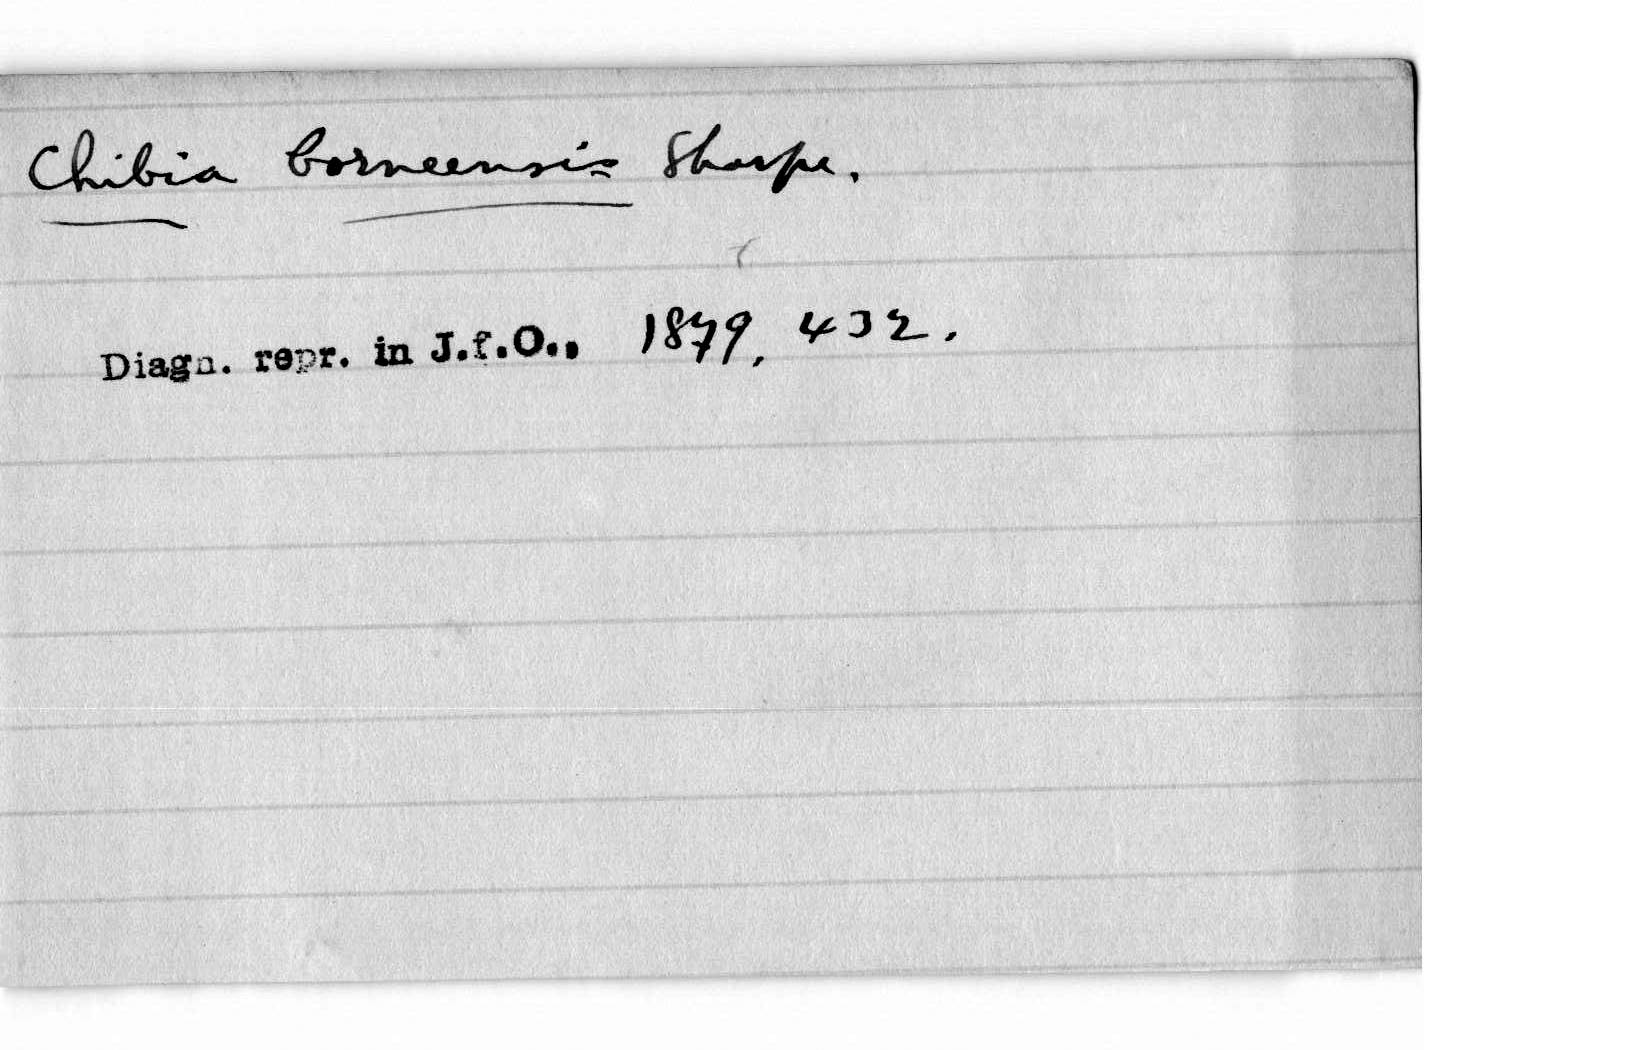 Chibia borneensis Sharpe.
Diagn. repr. in J.f.O., 1879, 432.